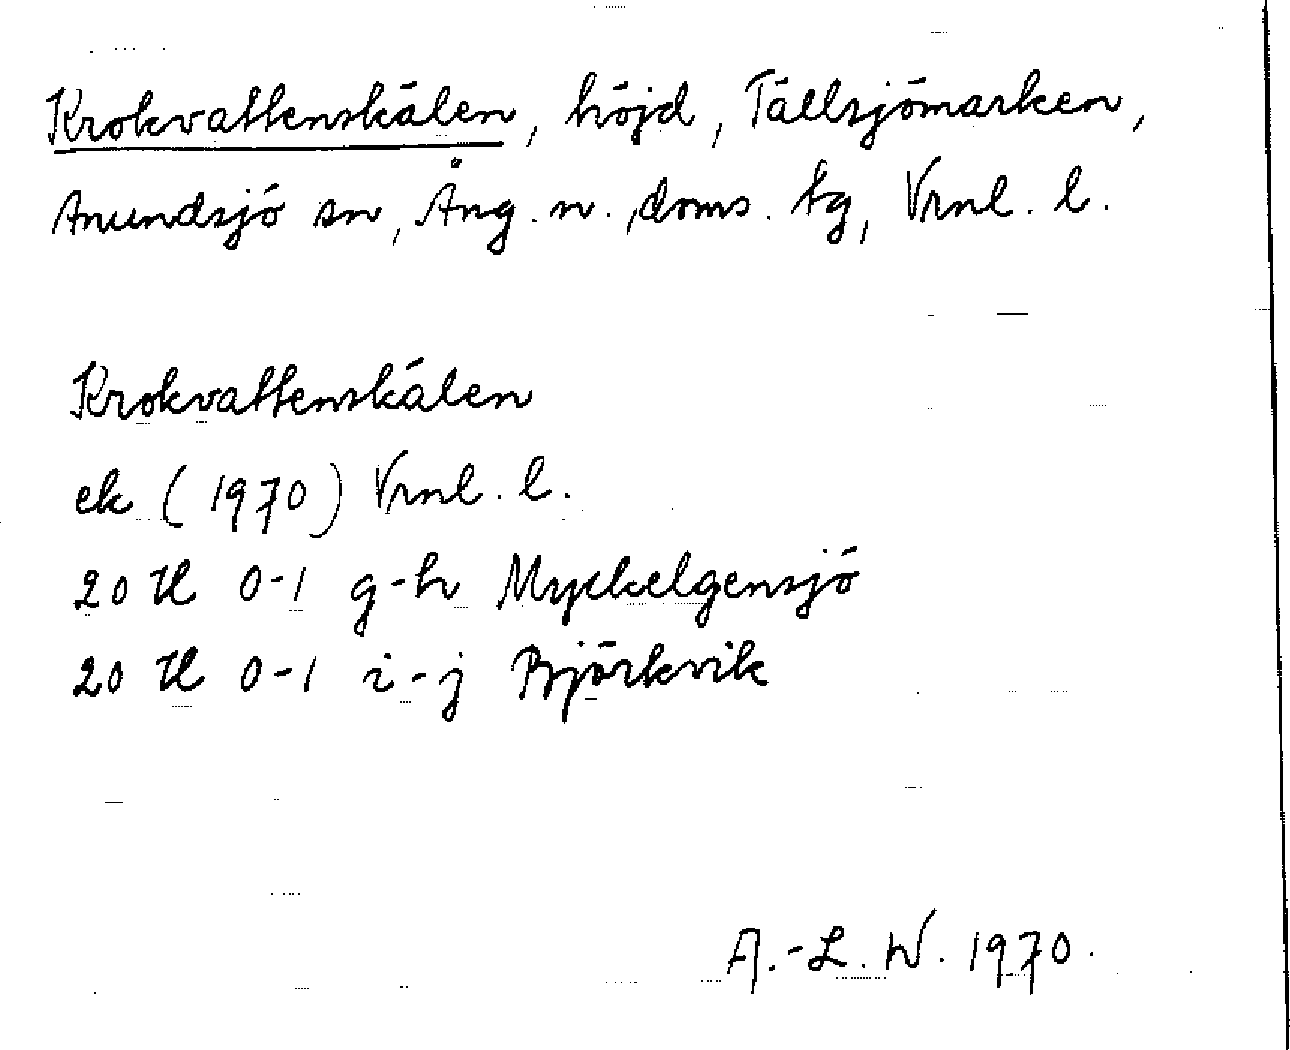 Krokvattenskälen, höjd, Tällsjömarken,
Anundsjö sn, Ång. n. doms. tg, Vrnl. l.
Krokvattenskälen
ek (1970) Vrnl. l.
20 H 0-1 g-h Myckelgensjö
20 H 0-1 i-j Björkvik
A.-L. W. 1970.